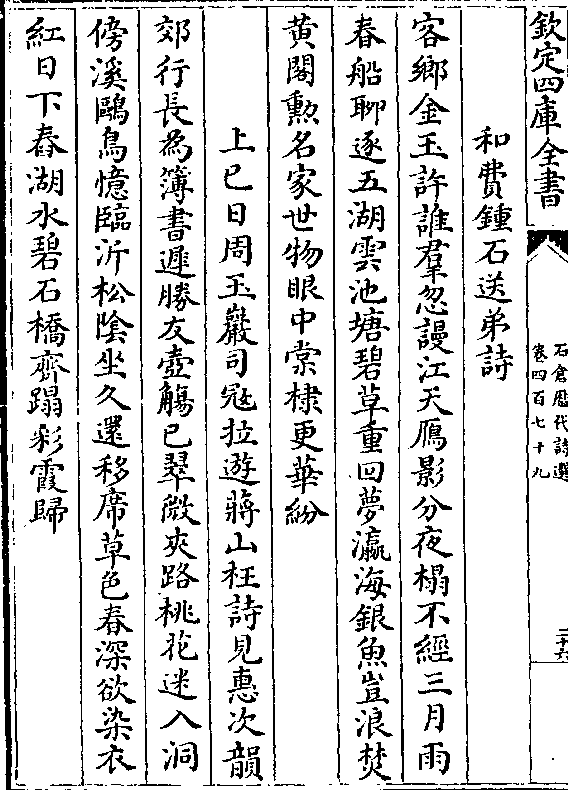 欽定四庫全書
石倉歷代詩選
卷四百七十九
二十六
和費鍾石送弟詩
客鄉金玉許誰羣忽謾江天鴈影分夜榻不經三月雨
春船聊逐五湖雲池塘碧草重回夢瀛海銀魚豈浪焚
黄閣勲名家世物眼中棠棣更華紛
上巳日周玉巖司冦拉遊蔣山枉詩見惠次韻
郊行長為簿書遲勝友壺觴已翠微夾路桃花迷入洞
傍溪鷗鳥憶臨沂松隂坐久還移席草色春深欲染衣
紅日下舂湖水碧石橋齊蹋彩霞歸